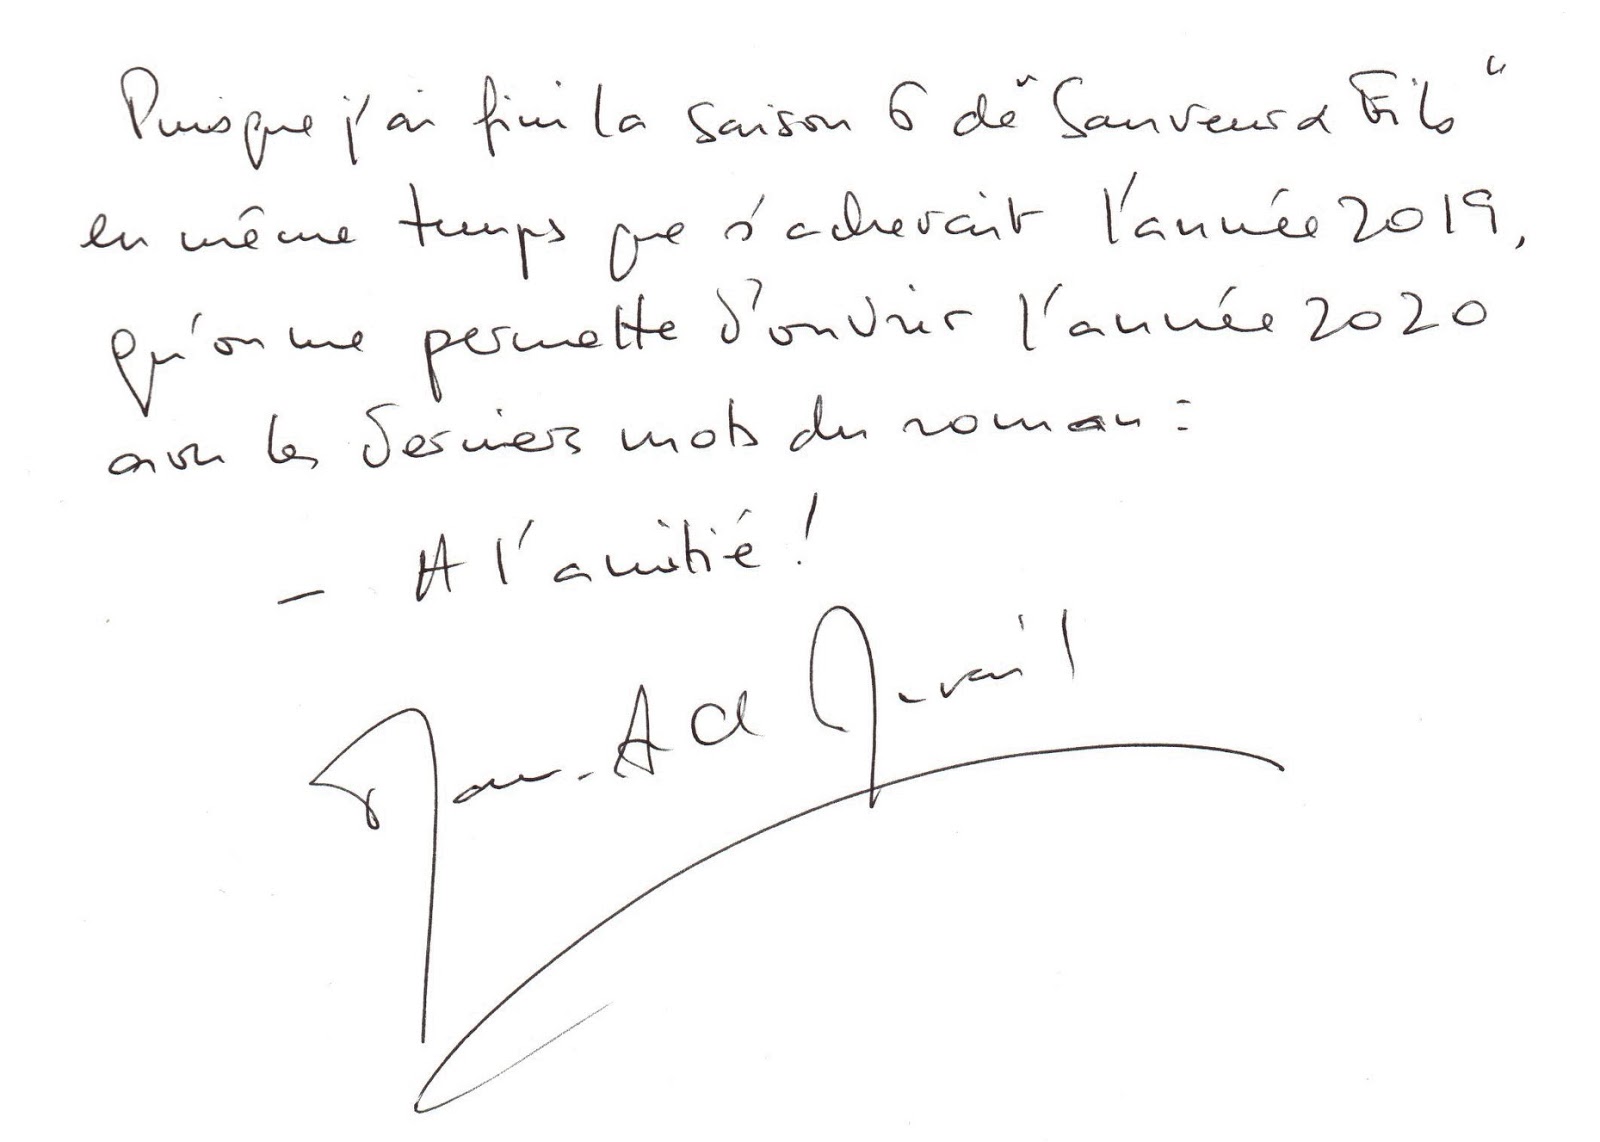 Puisque j'ai fini la saison 6 de "Sauveur & Fils"
en même temps que s'achevait l'année 2019,
qu'on me permette d'ouvrir l'année 2020
avec les derniers mots du roman :
– A l'amitié !
Marie-Aude Murail